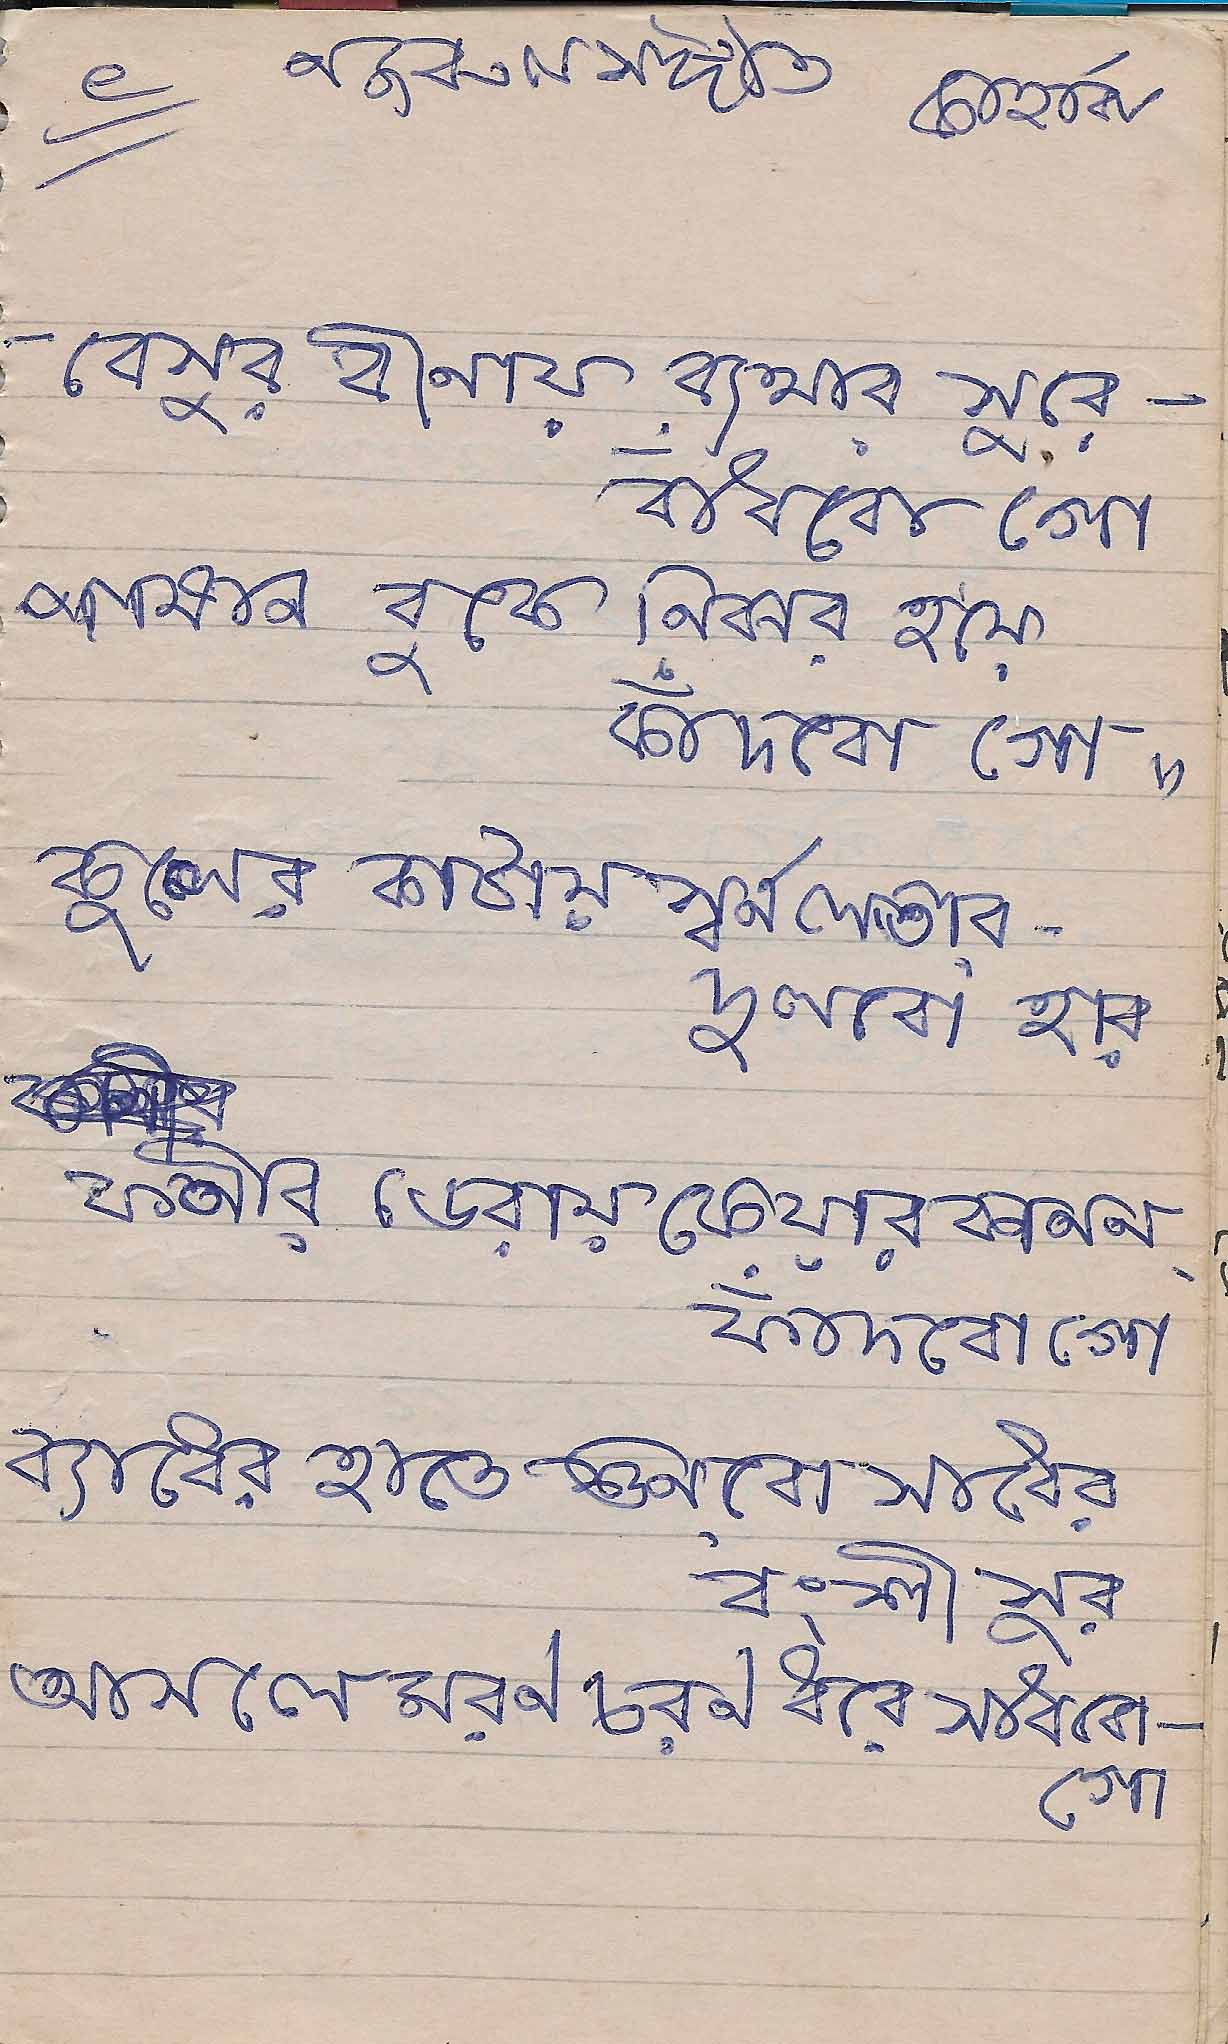 নজরুল সঙ্গীত কাহার্বা
- বেসুর বীনায় ব্যথার সুরে -
বাঁধবো গো
পাষান বুকে নিঝর হয়ে
কাঁদবো গো "
কুলের কাটায় স্বর্নলতার -
দুলবো হার
ফনীর ডেরায় কেয়ার কানন
ফাঁদবো গো
ব্যাধের হাতে শুনবো সাধের
বংশী সুর
আসলে মরন চরন ধরে সাধবো -
গো